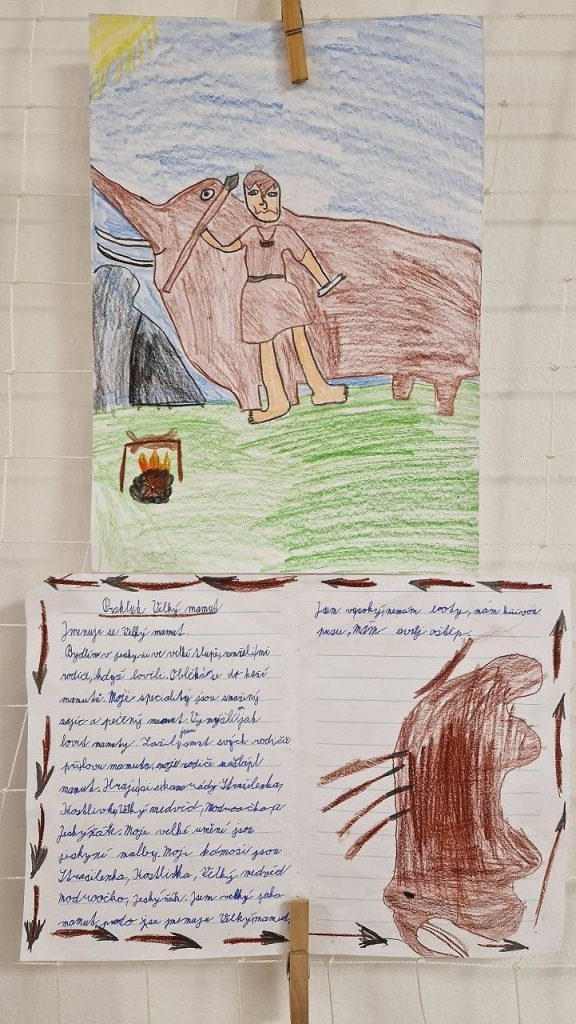 Pravěk Velký mamut
Jmenuje se Velký mamut.
Bydlím v jeskyni ve velké tlupě, zemřeli mi
rodiče, když lovili. Oblékáme do kůží
mamutů. Moje speciality jsou smažený
zajíc a pečený mamut. Vymyslil jsem jak
lovit mamuty. Zažil smrt svých rodičů
při lovu mamuta, moje rodiče zašlápl
mamut. Hraju si s kamarády Strašilenka,
Kostlivka, Velký medvěd, Modroočko a
Jeskyňák. Moje velké umění jsou
jeskyní malby. Moje kámoši jsou
Strašilenka, Kostlivka, Velký medvěd
modroočko, Jeskyňák. Jsem velký jako
mamut proto jse jmenuju Velký mamut,
Jsem vysoký, nemám boty, mám krivou
pusu, Mám svůj oštěp.